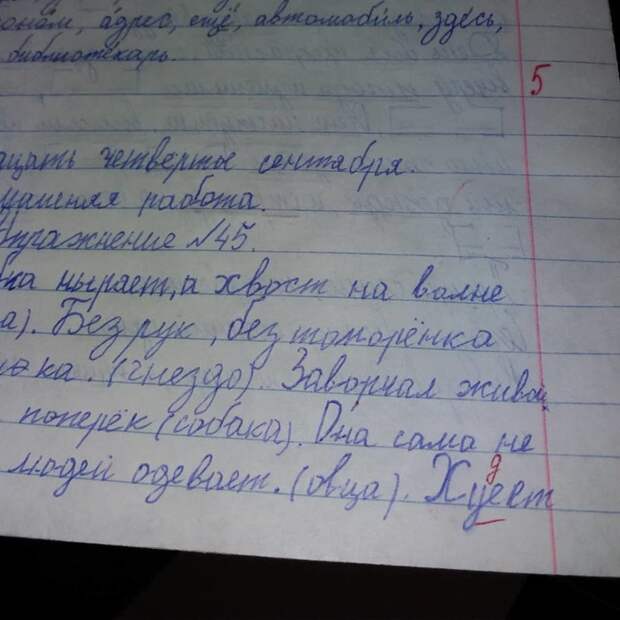 адрес, ещё, автомобиль, здесь,
библиотекарь.
5
четвертое сентября.
работа.
Упражнение №45.
ныряет, а хвост на волне
а). Без рук, без топорёнка
(гнездо). Заворчал живой
поперёк (собака). Она сама не
людей одевает. (овца). Хуеет
д